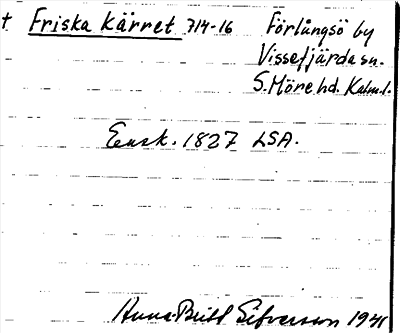 † Friska Kärret 714-16 Förlångsö by
Vissefjärda sn.
S. Möre hd. Kalm. l.
Ensk. 1827 LSA.
Anna-Britt Sefverson 1941